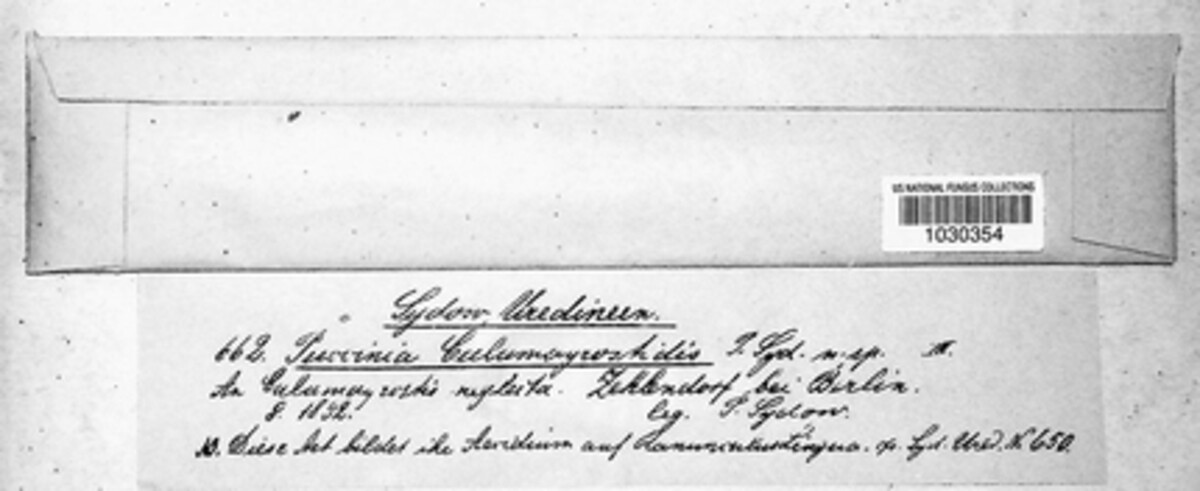 US NATIONAL FUNGUS COLLECTIONS
1030354
Sydow, Uredineen.
662. Puccinia Calamagrostidis P. Syd. n. sp. III.
An Calamagrostis neglecta. Zehlendorf bei Berlin.
8. 1892. leg. P. Sydow.
NB. Diese Art bildet ihr Aecidium auf Ranunculus Lingua. cfr. Syd. Ured. N 650.